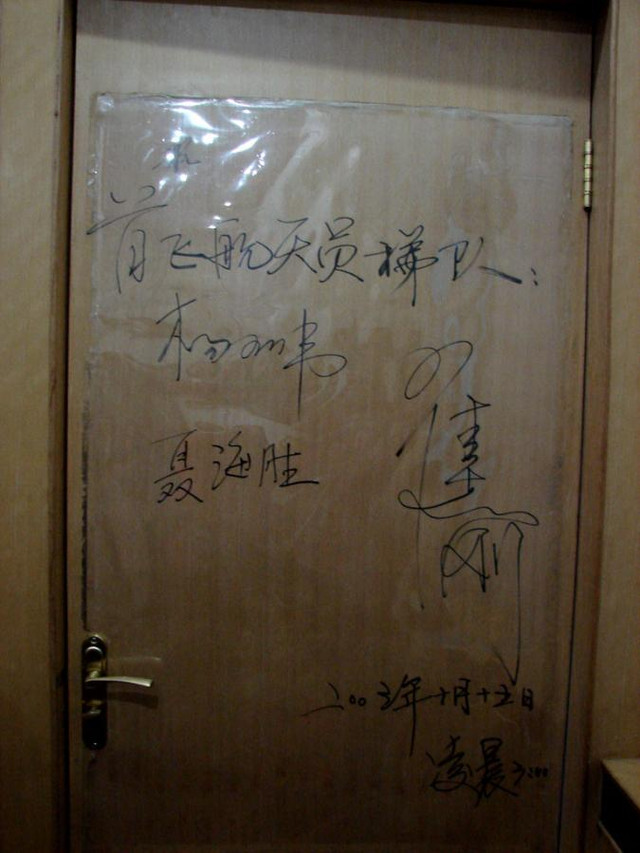 首飞航天员梯队:
杨利伟
聂海胜
翟志刚
二00三年十月十五日
凌晨3:00